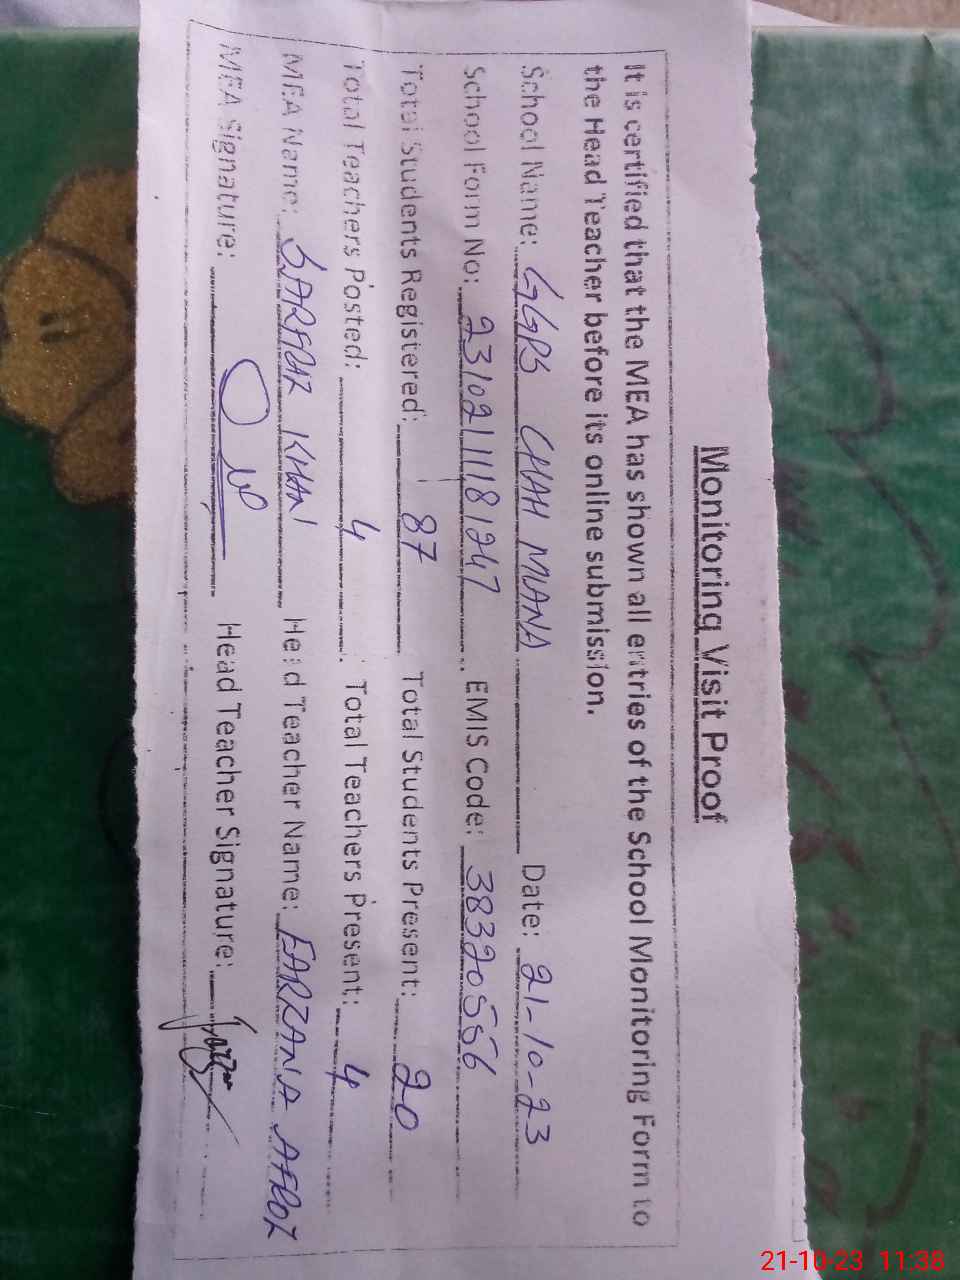 Monitoring Visit Proof
It is certified that the MEA has shown all entries of the School Monitoring Form to
the Head Teacher before its online submission.
School Name: GGPS CHAH MIANA Date: 21-10-23
School Form No: 23102111181247 EMIS Code: 38320566
Total Students Registered: 87 Total Students Present: 20
Total Teachers Posted: 4 Total Teachers Present: 4
MEA Name: SARFRAZ KHAN Head Teacher Name: FARZANA AFROZ
MEA Signature: Head Teacher Signature:
21-10-23 11:38